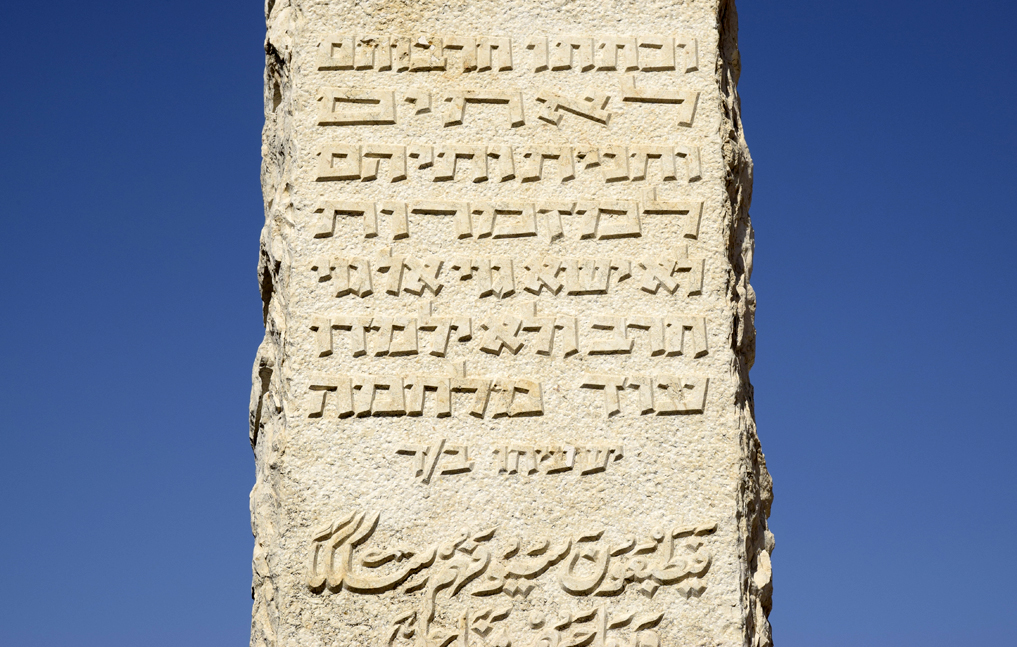 וכתתו חרבותם
לאתים
וחניתותיהם
למזמרות
לא ישא גוי אל גוי
חרב ולא ילמדו
עוד מלחמה
ישעיהו ב/ד
فيطبعون سيوفهم سككا